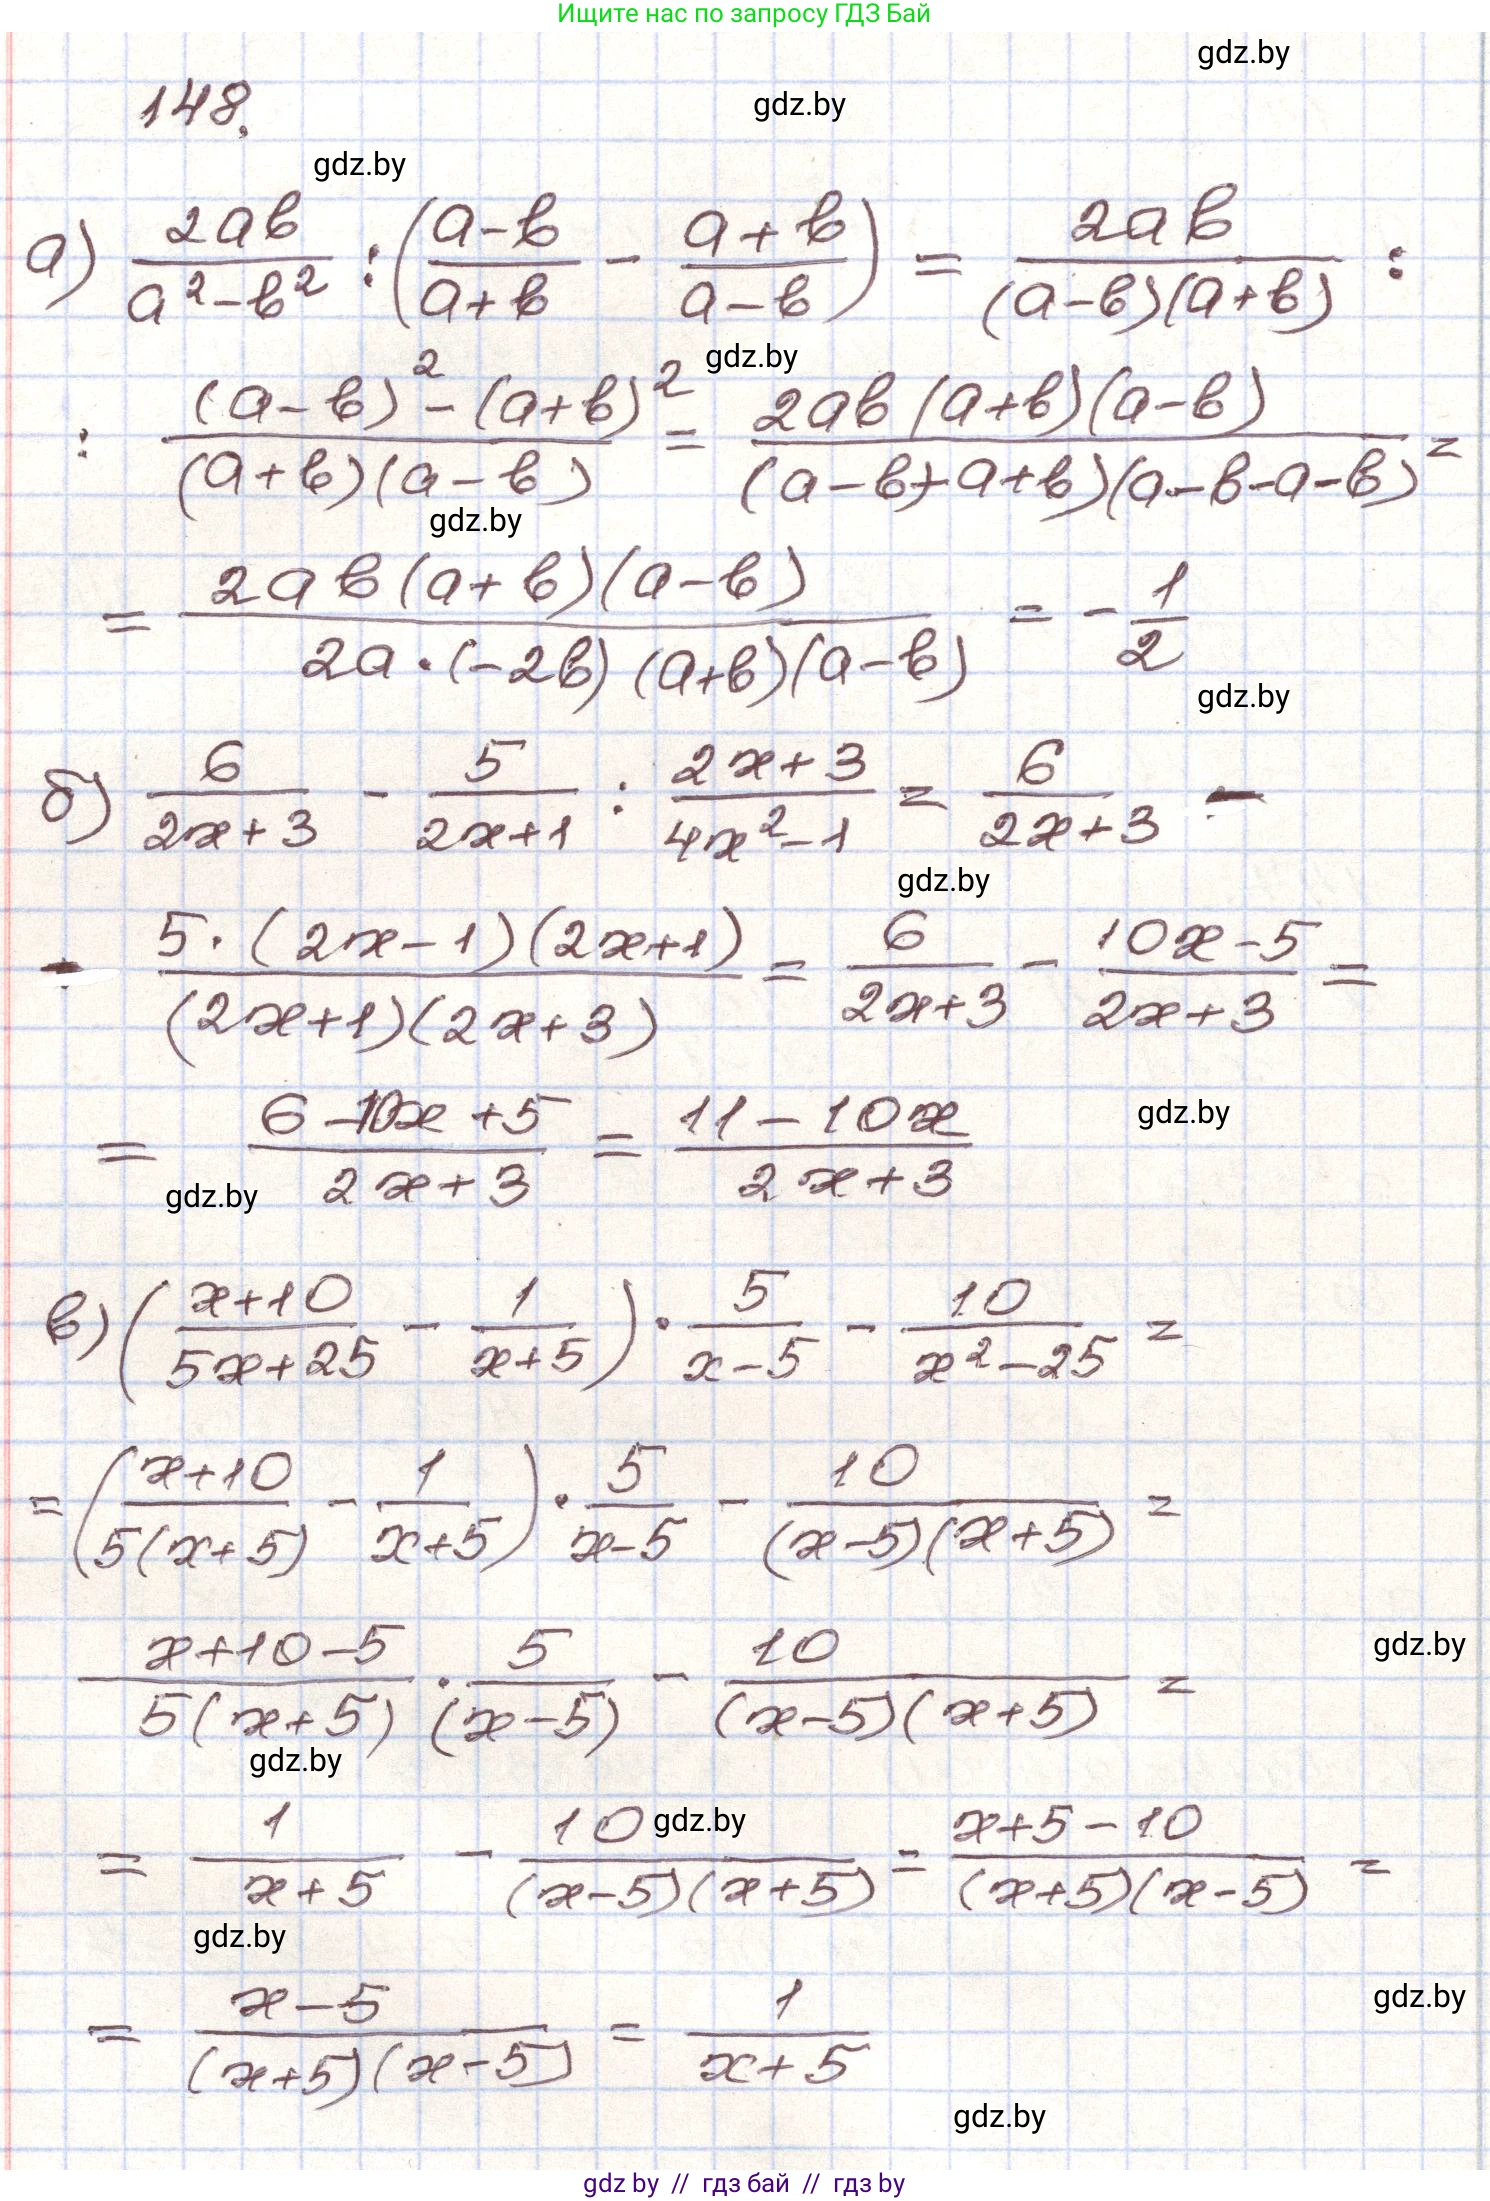 Ищите нас по запросу ГДЗ Бай
gdz.by
148.
gdz.by
gdz.by
а) 2ab/(a²-b²) : ((a-b)/(a+b) - (a+b)/(a-b)) = 2ab/((a-b)(a+b)) :
gdz.by
: ((a-b)²-(a+b)²)/((a+b)(a-b)) = 2ab(a+b)(a-b)/((a-b+a+b)(a-b-a-b)) =
gdz.by
= 2ab(a+b)(a-b)/(2a·(-2b)(a+b)(a-b)) = -1/2
gdz.by
б) 6/(2x+3) - 5/(2x+1) : (2x+3)/(4x²-1) = 6/(2x+3) -
gdz.by
- 5·(2x-1)(2x+1)/((2x+1)(2x+3)) = 6/(2x+3) - (10x-5)/(2x+3) =
= (6-10x+5)/(2x+3) = (11-10x)/(2x+3)
gdz.by
gdz.by
в) ((x+10)/(5x+25) - 1/(x+5)) · 5/(x-5) - 10/(x²-25) =
= ((x+10)/(5(x+5)) - 1/(x+5)) · 5/(x-5) - 10/((x-5)(x+5)) =
(x+10-5)/(5(x+5)) · 5/(x-5) - 10/((x-5)(x+5)) =
gdz.by
gdz.by
= 1/(x+5) - 10/((x-5)(x+5)) = (x+5-10)/((x+5)(x-5)) =
gdz.by
gdz.by
= (x-5)/((x+5)(x-5)) = 1/(x+5)
gdz.by
gdz.by
gdz.by // гдз бай // гдз by